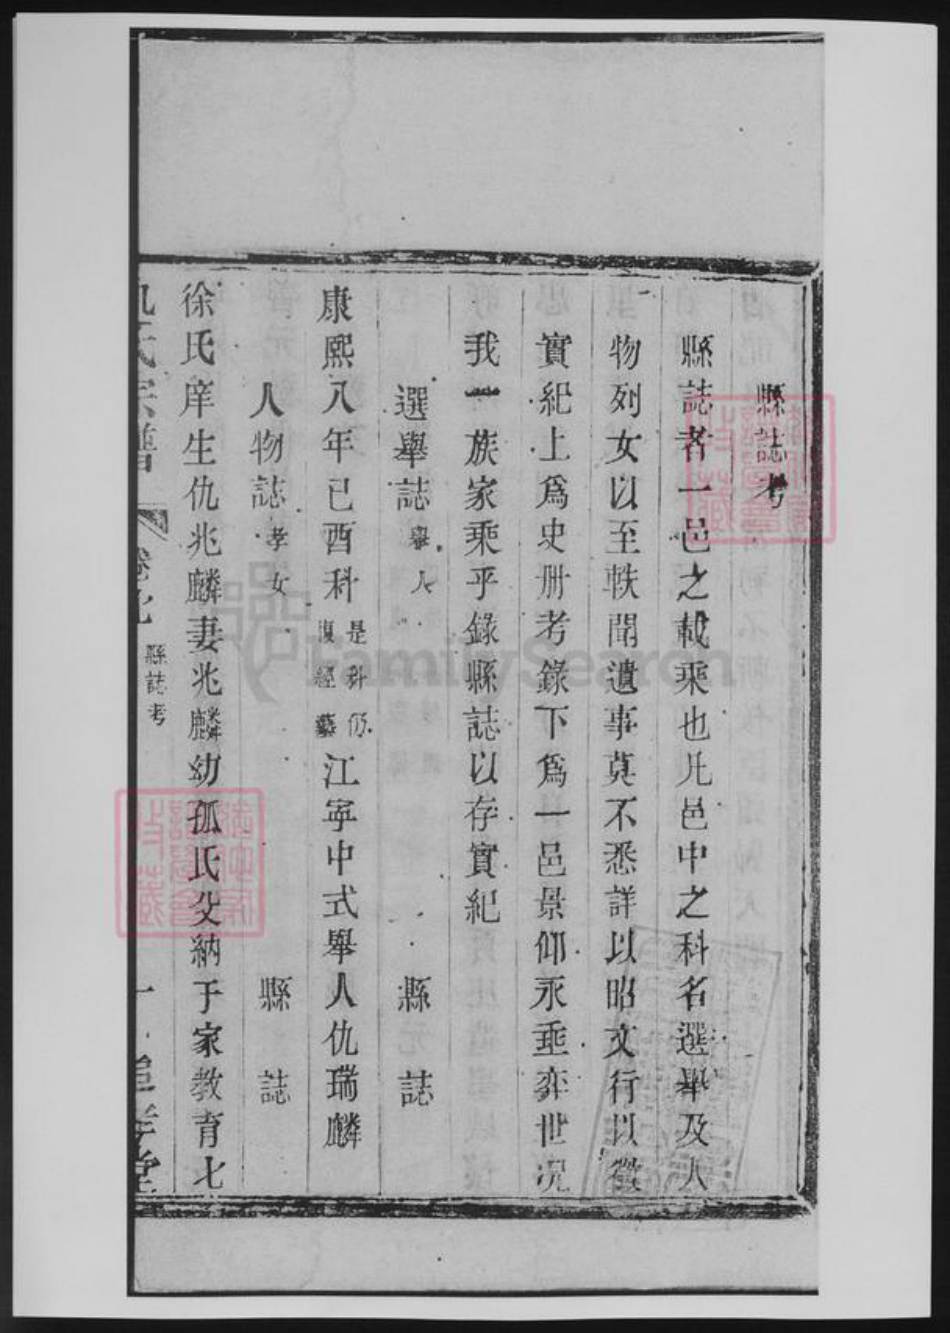 縣誌考
縣誌者一邑之載乘也凡邑中之科名選舉及人
物列女以至軼聞遺事莫不悉詳以昭文行以徵
實紀上爲史册考錄下爲一邑景仰永垂奕世况
我一族家乘乎錄縣誌以存實紀
選舉誌 舉人 縣誌
康熙八年己酉科 是科仍復經藝 江寧中式舉人仇瑞麟
人物誌 孝女 縣誌
徐氏庠生仇兆麟妻兆麟幼孤氏父納于家教育七
仇氏宗譜 卷 縣誌考 一 堂
FamilySearch